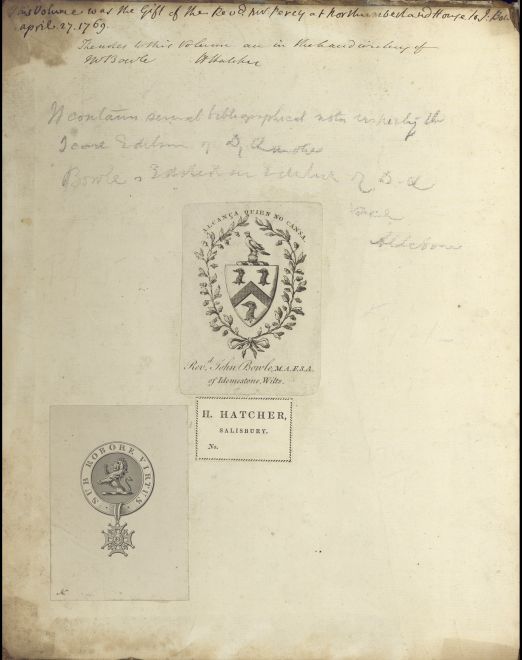 This Volume was the Gift of the Revd. Mr. Percy at Northumberland House to J. Bowle
april 27. 1769.
The notes to this Volume are in the handwriting of
J Bowle H Hatcher
It contains several bibliographical notes respecting the
Edition of D. Quixotes
Bowle Edition of D
ALCANÇA QUIEN NO CANSA.
Revd. John Bowle, M.A.F.S.A.
of Idemestone, Wilts.
H. HATCHER,
SALISBURY.
No.
SUB ROBORE VIRTUS